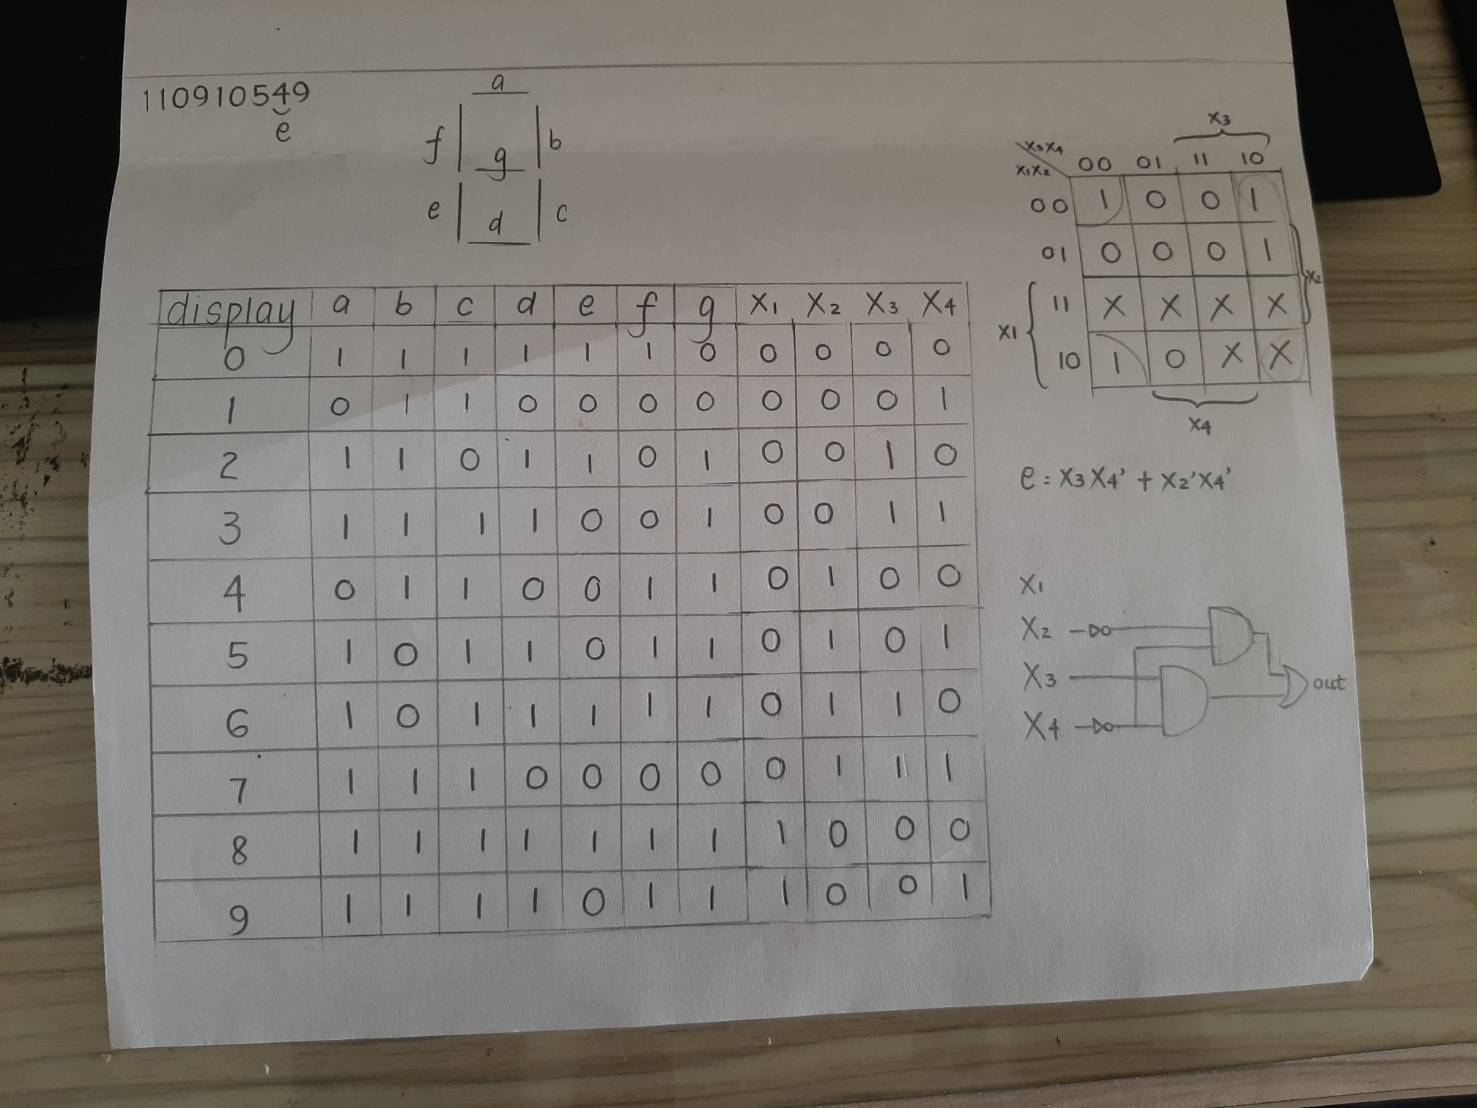 110910549
e
a
f b
g
e c
d
display a b c d e f g X1 X2 X3 X4
0 1 1 1 1 1 1 0 0 0 0 0
1 0 1 1 0 0 0 0 0 0 0 1
2 1 1 0 1 1 0 1 0 0 1 0
3 1 1 1 1 0 0 1 0 0 1 1
4 0 1 1 0 0 1 1 0 1 0 0
5 1 0 1 1 0 1 1 0 1 0 1
6 1 0 1 1 1 1 1 0 1 1 0
7 1 1 1 0 0 0 0 0 1 1 1
8 1 1 1 1 1 1 1 1 0 0 0
9 1 1 1 1 0 1 1 1 0 0 1
X3
X3X4
X1X2 00 01 11 10
00 1 0 0 1
01 0 0 0 1
X2
X1 11 X X X X
10 1 0 X X
X4
e : X3X4' + X2'X4'
X1
X2
X3 out
X4